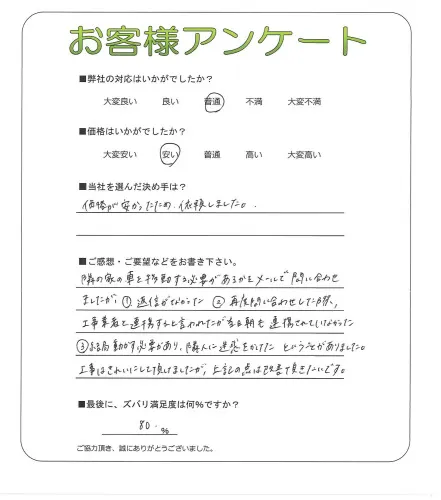 お客様アンケート
■弊社の対応はいかがでしたか？
大変良い 良い 普通 不満 大変不満
■価格はいかがでしたか？
大変安い 安い 普通 高い 大変高い
■当社を選んだ決め手は？
価格が安かったため、依頼しました。
■ご感想・ご要望などをお書き下さい。
隣の家の車を移動する必要があるかをメールで問い合わせ
ましたが、①返信がなかった ②再度問い合わせした際、
工事業者と連携すると言われたが当日朝も連携されていなかった
③結局動かす必要があり、隣人に迷惑をかけた ということがありました。
工事はきれいにして頂けましたが、上記の点は改善頂きたいです。
■最後に、ズバリ満足度は何%ですか？
80. %
ご協力頂き、誠にありがとうございました。